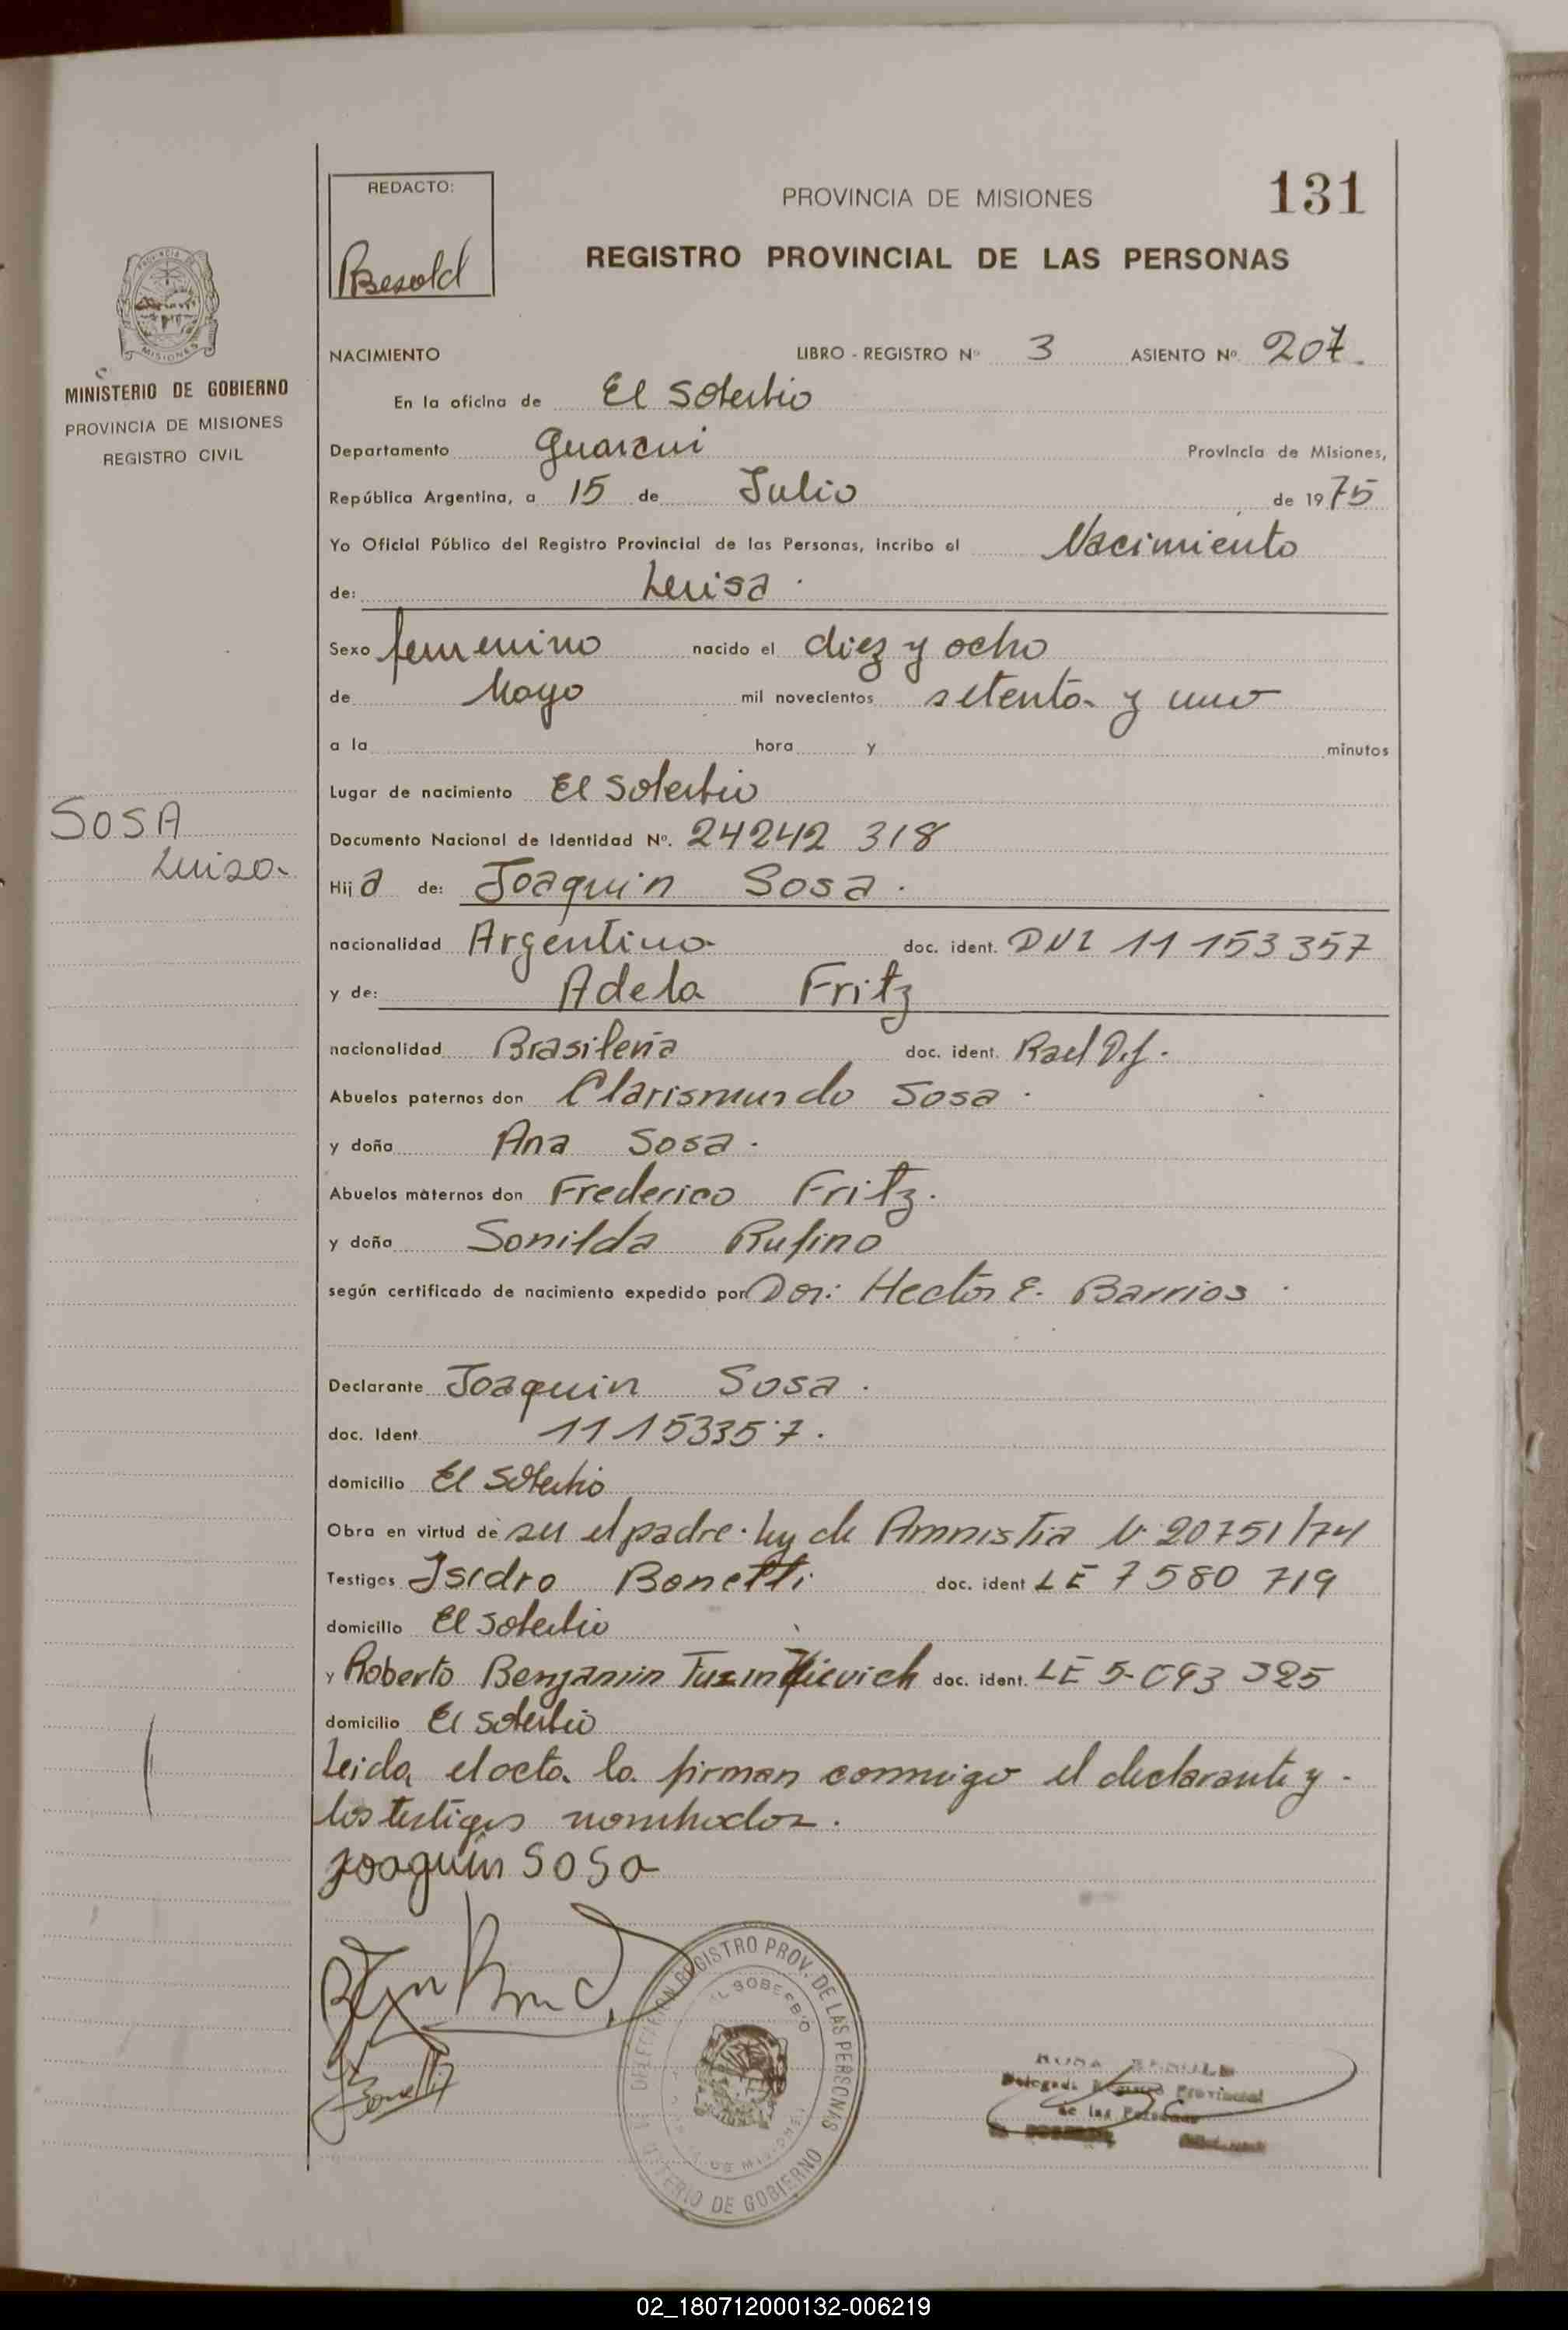 131
REDACTO:
PROVINCIA DE MISIONES
REGISTRO PROVINCIAL DE LAS PERSONAS
Besold
MINISTERIO DE GOBIERNO
PROVINCIA DE MISIONES
REGISTRO CIVIL
NACIMIENTO LIBRO - REGISTRO Nº 3 ASIENTO Nº 207.
En la oficina de El Soberbio
Departamento Guarani Provincia de Misiones,
República Argentina, a 15 de Julio de 1975
Yo Oficial Público del Registro Provincial de las Personas, incribo el Nacimiento
de: Luisa.
Sexo femenino nacido el diez y ocho
de Mayo mil novecientos setenta y uno
a la hora y minutos
Lugar de nacimiento El Soberbio
SOSA
Luisa.
Documento Nacional de Identidad Nº. 24242 318
Hija de: Joaquin Sosa.
nacionalidad Argentino doc. ident. DNI 11 153 357
y de: Adela Fritz
nacionalidad Brasileña doc. ident. Rael
Abuelos paternos don Clarismundo Sosa.
y doña Ana Sosa.
Abuelos maternos don Frederico Fritz.
y doña Sonilda Rufino
según certificado de nacimiento expedido por Dor: Hector E. Barrios
Declarante Joaquin Sosa.
doc. Ident 11153357.
domicilio El Soberbio
Obra en virtud de ser el padre. Ley de Amnistia N. 20751/74
Testigos Isidro Bonetti doc. ident LE 7580 719
domicilio El Soberbio
y Roberto Benjamin doc. ident. LE 5-093 325
domicilio El Soberbio
Leida el acta la firman conmigo el declarante y
los testigos nombrados.
Joaquin SoSa
DELEGACION REGISTRO PROV. DE LAS PERSONAS
EL SOBERBIO
MINISTERIO DE GOBIERNO
Delegada Registro Provincial
de las Personas
02_180712000132-006219